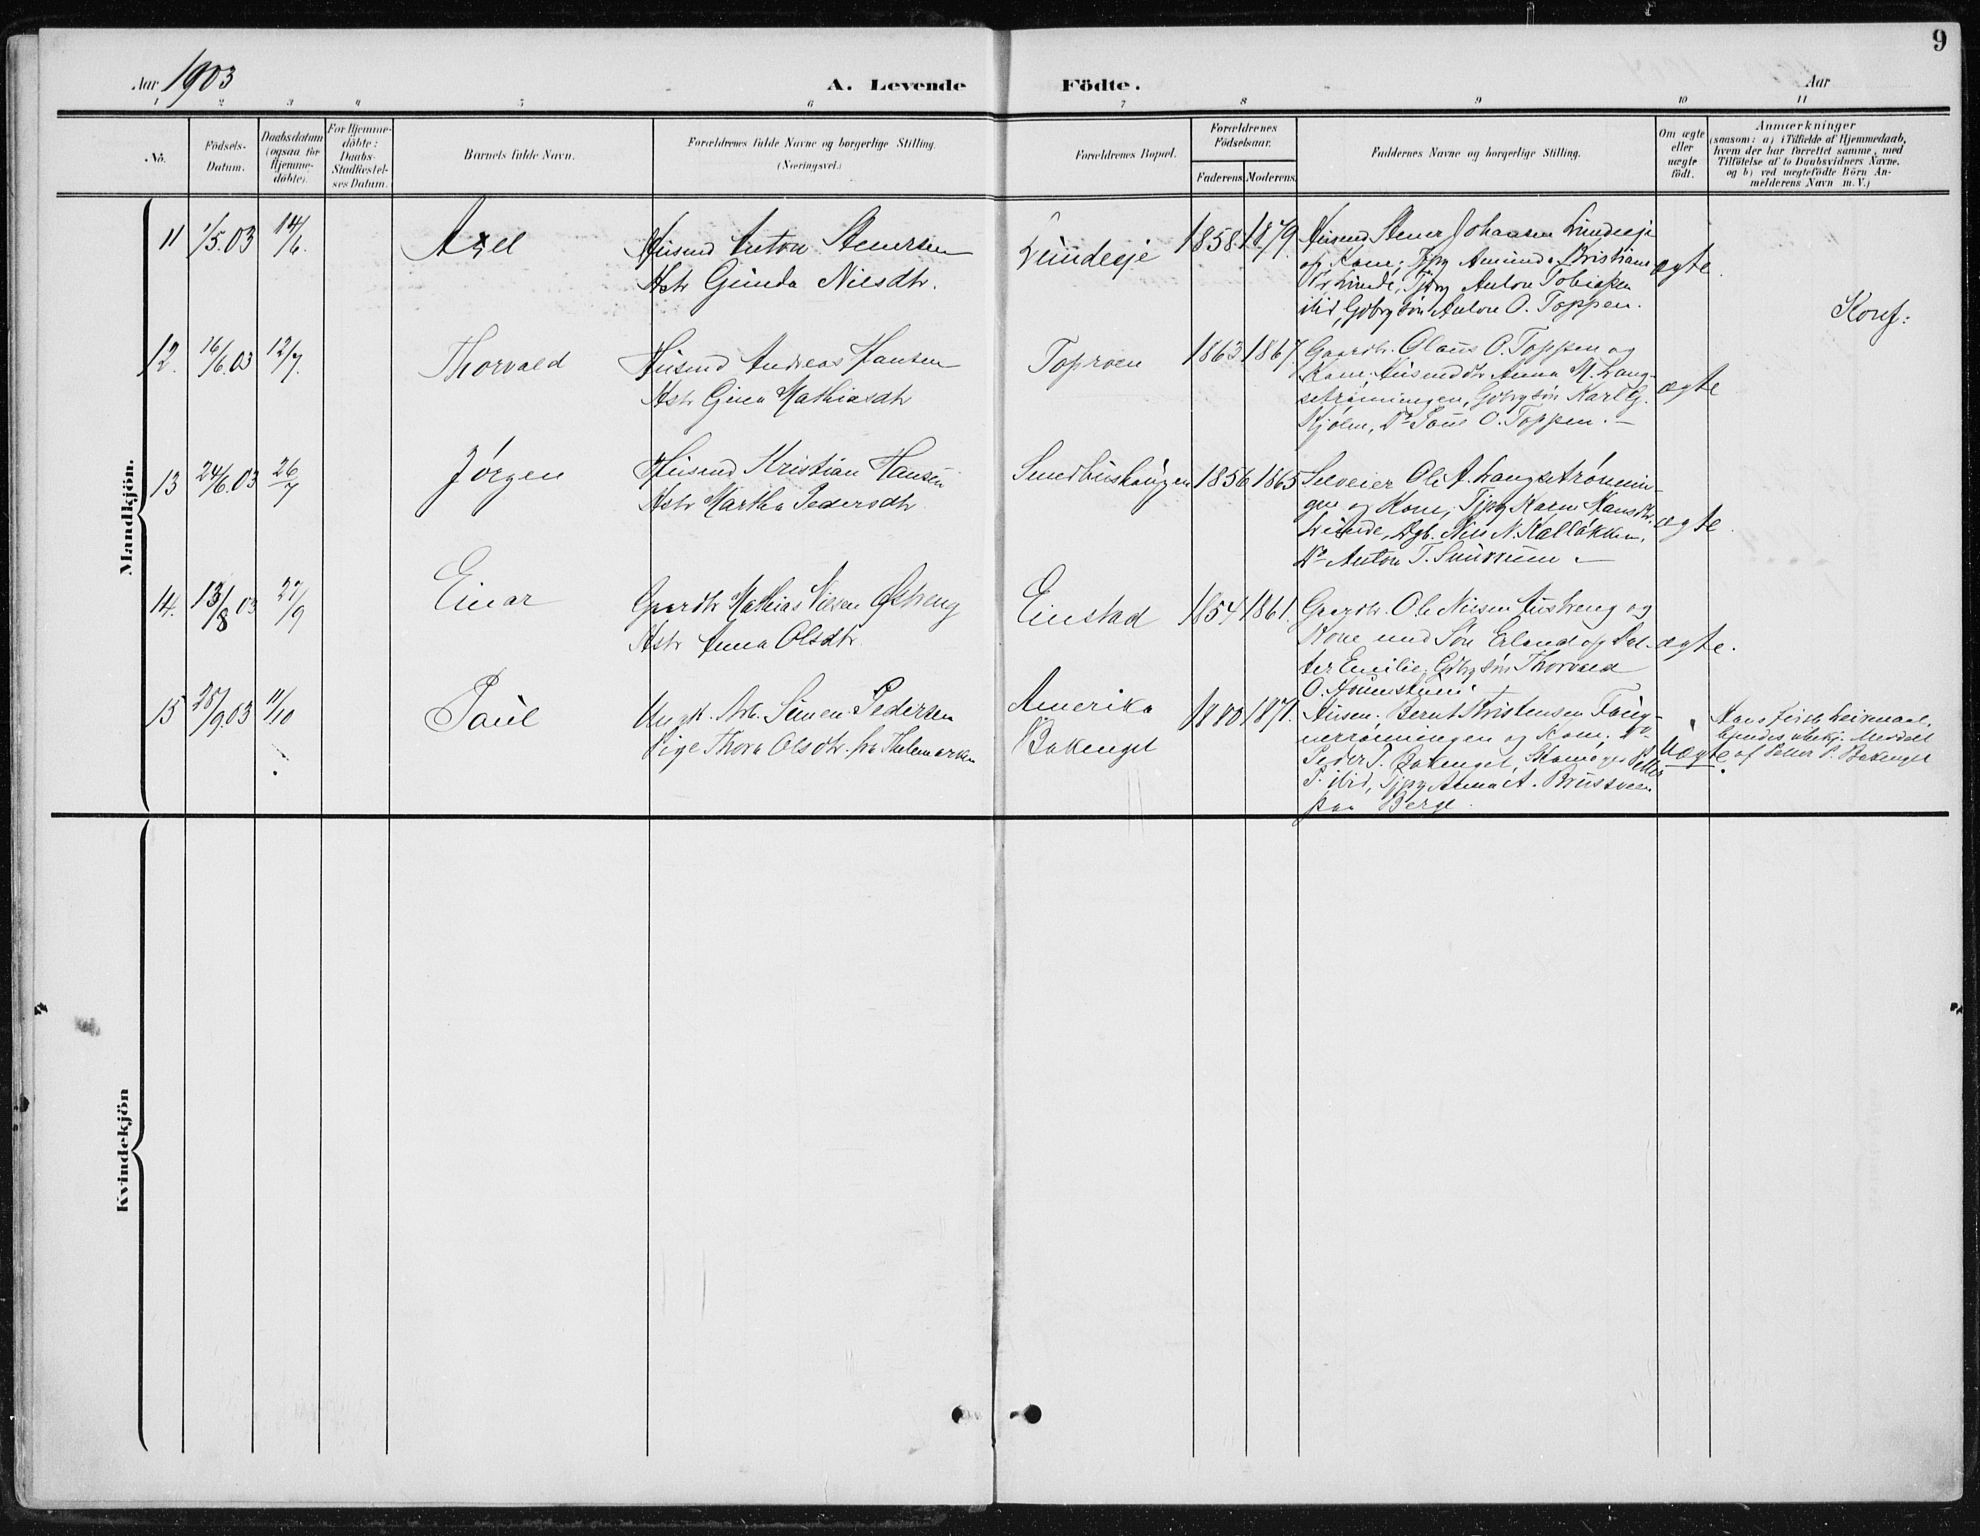 9
Aar 1903
A. Levende Födte.
Aar
1 2 3 4 5 6 7 8 9 10 11
No.
Födsels-
Datum.
Daabsdatum
(ogsaa for
Hjemme-
döbte).
For Hjemme-
döbte:
Daabs-
Stadfæstel-
ses Datum.
Barnets fulde Navn.
Forældrenes fulde Navne og borgerlige Stilling.
(Næringsvei.)
Forældrenes Bopæl.
Forældrenes
Födselsaar.
Faderens. Moderens.
Faddernes Navne og borgerlige Stilling.
Om ægte
eller
uægte
födt.
Anmærkninger
(saasom: a) i Tilfælde af Hjemmedaab,
hvem der har forrettet samme, med
Tilföielse af to Daabsvidners Navne,
og b) ved uægtefödte Börn An-
melderens Navn m. V.)
Mandkjön.
11 1/5.03 14/6. Axel
Husmd Anton Stenersen
Hstr Gunda Nilsdtr.
Lundeeje
1858. 1879.
Husmd Stener Johansen Lundeeje
og Kone, Tjpg Amunda Kristians
Lunde, Tjdrg Anton Tobiassen
ibid, Gdbrgsön Anton O. Toppen.
ægte.
Konf:
12. 16/6.03 12/7. Thorvald
Husmd Andreas Hansen
Hstr Gina Mathiasdtr
Toproen
1863 1867.
Gaardbr. Olaus O. Toppen og
Kone, Husmddtr Anna M. Lang-
setrönningen, Gdbrgsön Karl G.
Kjölen, Do O. Toppen.
ægte
13 24/6.03 26/7 Jörgen
Husmd Kristian Hansen
Hstr Martha Pedersdtr.
Smedbushaugen
1856 1865
Selveier Ole A. Langsetrönnin-
gen og Kone, Tjpg Karen Hansdtr.
Lunde, Nils N. Kalløkken,
Do Anton T.
ægte.
14. 13/8 03 27/9 Einar
Gaardbr Mathias Nilsen Østreng
Hstr Anna Olsdtr.
Einstad
1854 1861.
Gaardbr. Ole Nilsen Austreng og
Kone med Sön Erland og Dat-
ter Emilie, Gdbrgsön Thorvald
O.
ægte.
15 28/9.03 11/10 Paul
Ungk. Arb. Simen Pedersen
Pige Thora Olsdtr. fra Thelemarken
Amerika
Bakenget
1880 1871.
Husm. Bernt Kristensen Faug-
nerrönningen og Kone,
Peder P. Bakenget, Skomager Petter
P. ibid, Tjpg Anna A. Brustveen
paa Berge.
Uægte
Hans første Leiermaal,
hendes ubekj. Meddelt
af Petter P. Bakenget
Kvindekjön